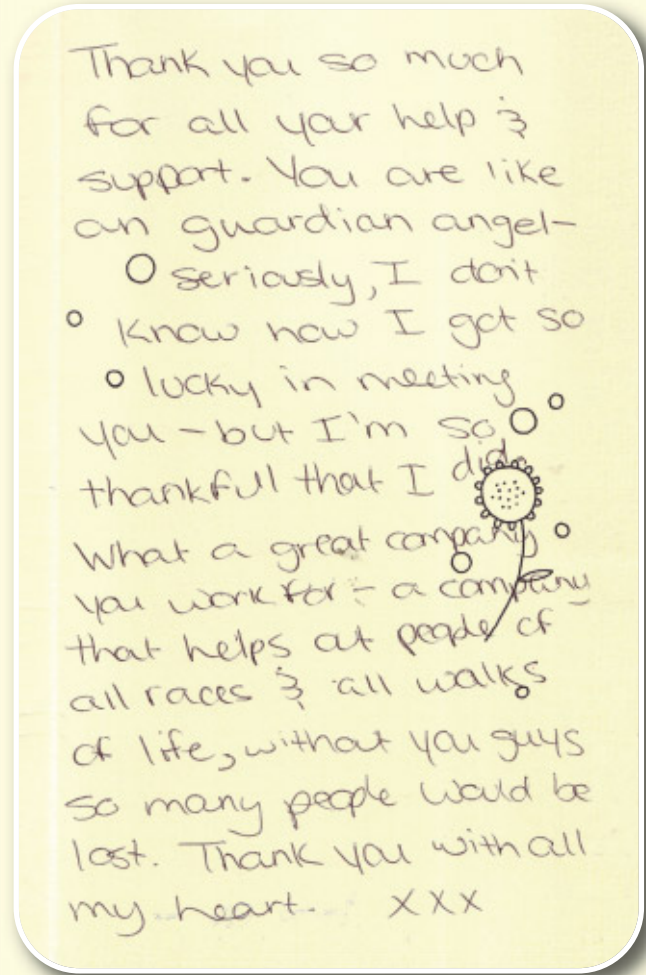 Thank you so much
for all your help &
support. You are like
an guardian angel-
seriously, I don't
know how I got so
lucky in meeting
you - but I'm so
thankful that I did.
What a great company
you work for - a company
that helps out people of
all races & all walks
of life, without you guys
so many people would be
lost. Thank you with all
my heart. xxx